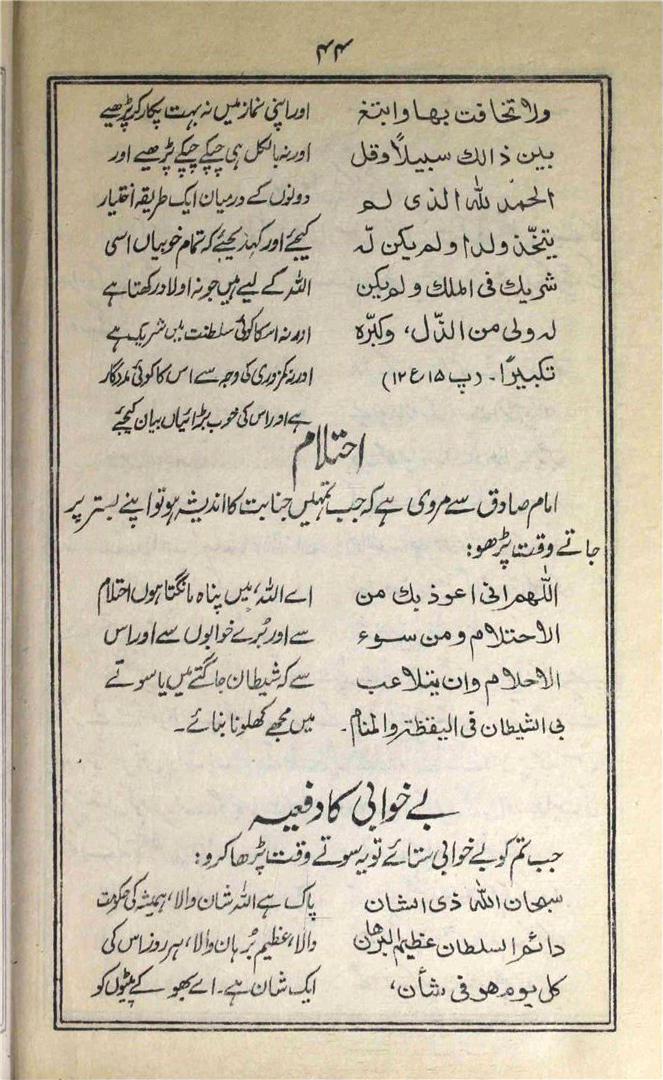 ۴۴
ولا تخافت بها وابتغ اور اپنی نماز میں نہ بہت پکار کر پڑھیے
بین ذالك سبیلاً وقل اور نہ بالکل ہی چپکے چپکے پڑھیے اور
الحمد للّٰہ الذی لم دونوں کے درمیان ایک طریقہ اختیار
یتخذ ولدا ولم یکن لہ کیجئے اور کہدیجئے کہ تمام خوبیاں اسی
شریك فی الملك ولم یکن اللہ کے لیے ہیں جو نہ اولاد رکھتا ہے
لہ ولی من الذّل، وکبّرہ اور نہ اسکا کوئی سلطنت میں شریک ہے
تکبیرًا۔ (پ ۱۵ ع ۱۲) اور نہ کمزوری کی وجہ سے اس کا کوئی مددگار
ہے اور اس کی خوب بڑائیاں بیان کیجئے
احتلام
امام صادق سے مروی ہے کہ جب تمہیں جنابت کا اندیشہ ہو تو اپنے بستر پر
جاتے وقت پڑھو:
اللّٰھم انی اعوذ بك من اے اللہ، میں پناہ مانگتا ہوں احتلام
الاحتلام ومن سوء سے اور بُرے خوابوں سے اور اس
الاحلام وان یتلاعب سے کہ شیطان جاگتے میں یا سوتے
بی الشیطان فی الیقظۃ والمنام۔ میں مجھے کھلونا بنائے۔
بے خوابی کا دفعیہ
جب تم کو بے خوابی ستائے تو یہ سوتے وقت پڑھا کرو:
سبحان اللّٰہ ذی الشان پاک ہے اللہ شان والا، ہمیشہ کی حکومت
دائم السلطان عظیم البرھان والا، عظیم بُرہان والا، ہر روز اس کی
کل یوم ھو فی شأن، ایک شان ہے۔ اے بھوکے پیٹوں کو